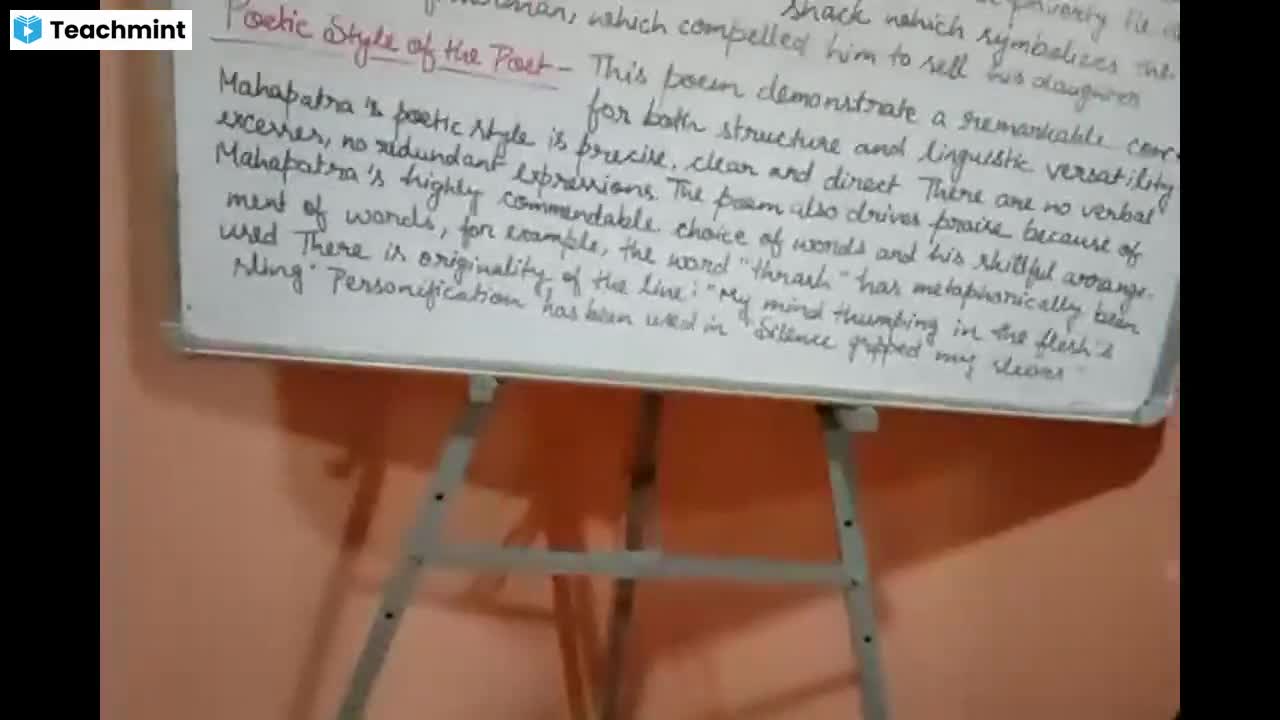 Teachmint
poverty lie
shack which symbolizes the
man, which compelled him to sell his daughter
Poetic Style of the Poet - This poem demonstrate a remarkable
for both structure and linguistic versatility
Mahapatra's poetic style is precise, clear and direct There are no verbal
excesses, no redundant expressions. The poem also drives praise because of
Mahapatra's highly commendable choice of words and his skillful arrange-
ment of words, for example, the word "thrash" has metaphorically been
used There is originality of the line: "My mind thumping in the flesh's
sling" Personification has been used in "Silence gripped my sleeves"